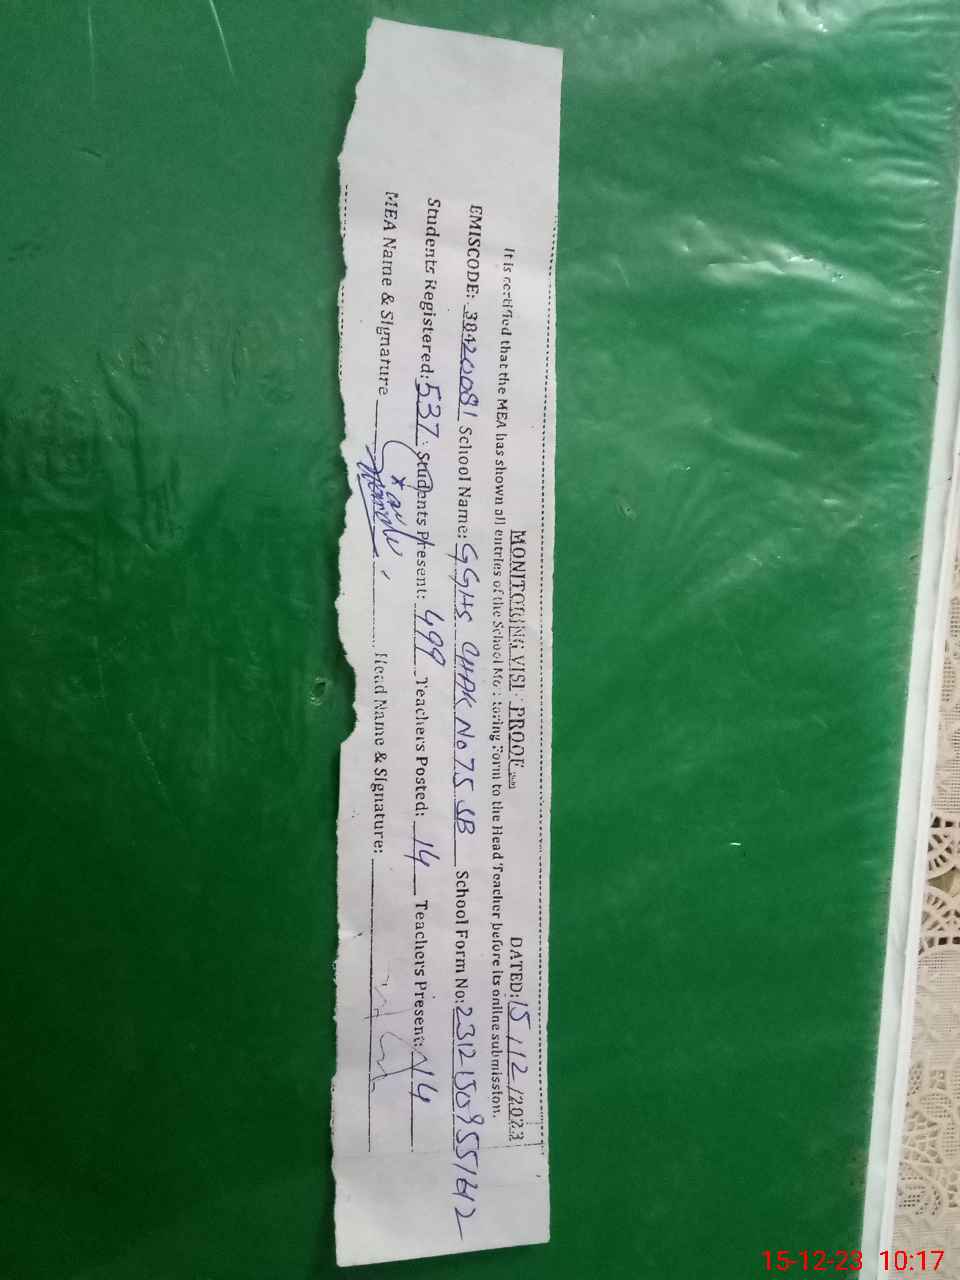 MONITORING VISIT PROOF DATED: 15/12/2023
It is certified that the MEA has shown all entries of the School Monitoring Form to the Head Teacher before its online submission.
EMISCODE: 38420081 School Name: GGHS CHAK No 75 SB School Form No:
Students Registered: 537 Students Present: 499 Teachers Posted: 14 Teachers Present: 14
MEA Name & Signature Head Name & Signature:
15-12-23 10:17